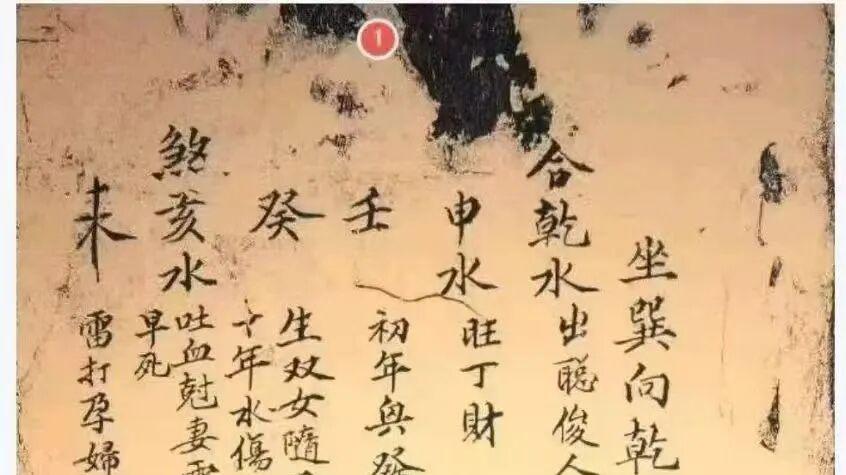 坐巽向乾
合乾水出聪俊人
申水旺丁財
壬初年興發
癸生双女隨
十年水傷
煞亥水吐血尅妻
早死
未雷打孕婦
1